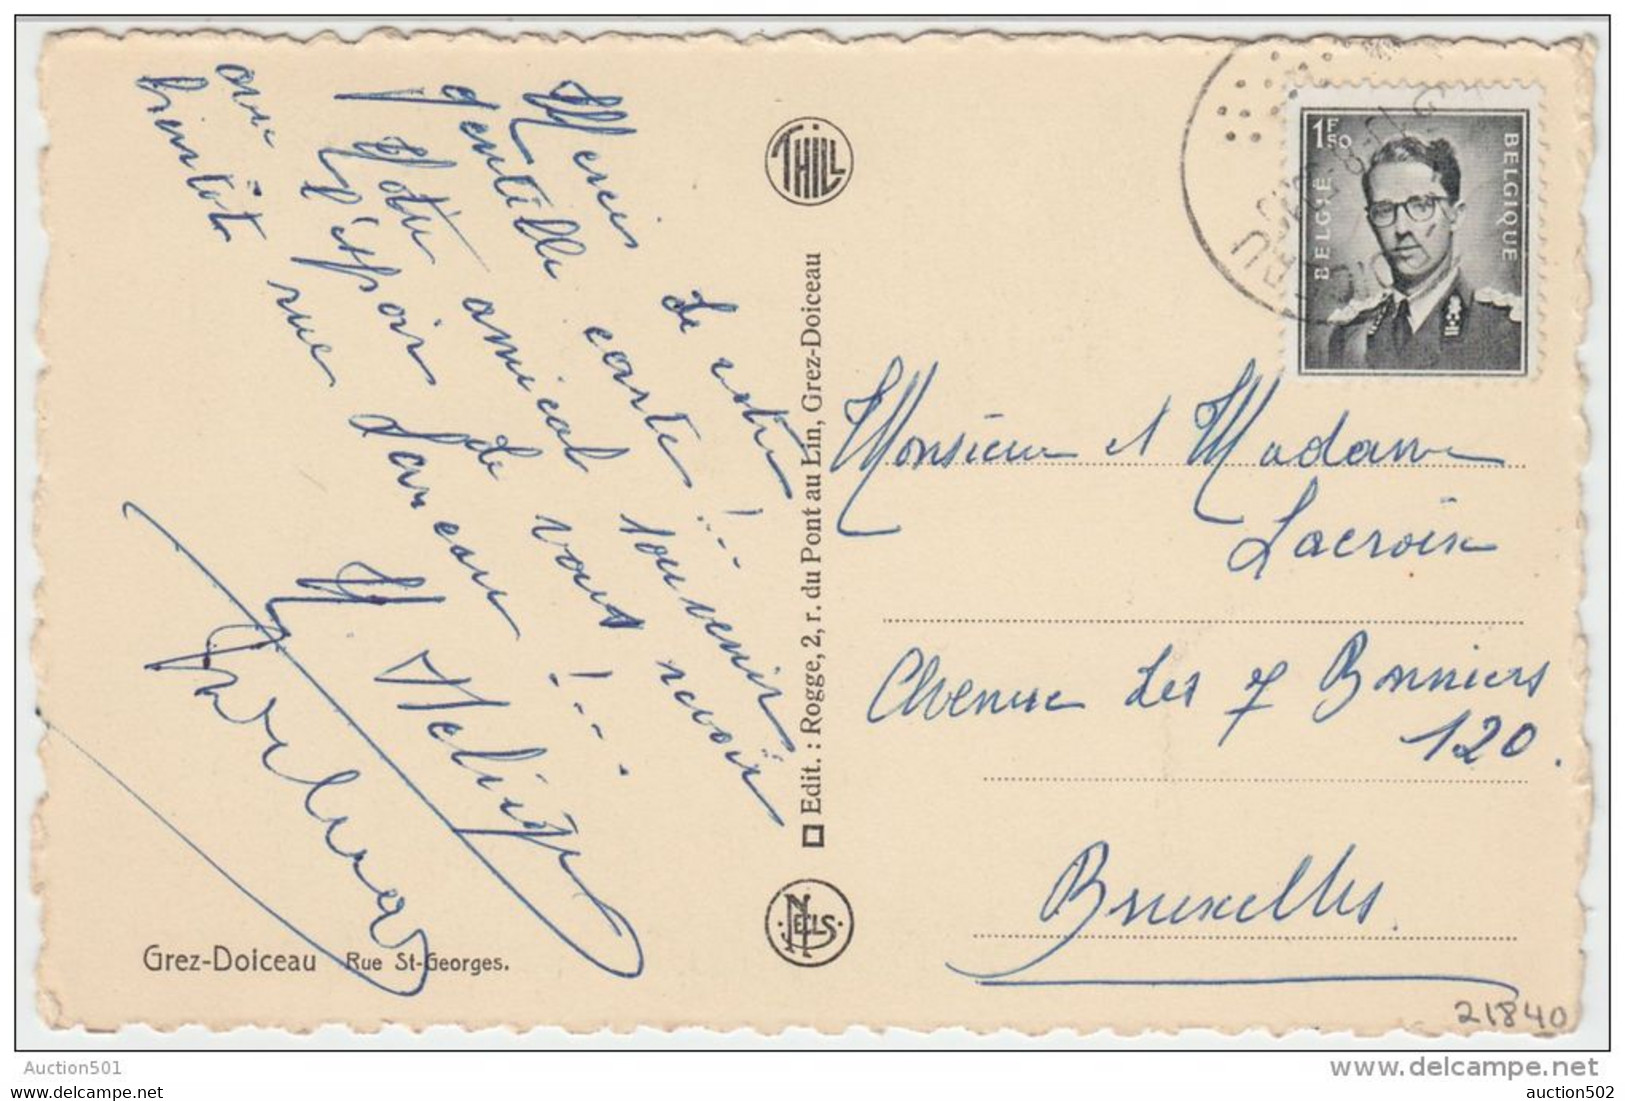 Merci de votre
gentille carte !...
Notre amical souvenir
l'espoir de vous revoir
bientôt rue
Grez-Doiceau Rue St-Georges.
THILL
Edit. : Rogge, 2, r. du Pont au Lin, Grez-Doiceau
NELS
1F50
BELGIË
BELGIQUE
Monsieur et Madame
Lacroix
Avenue des 7 Bonniers
120.
Bruxelles.
21840
Auction501
www.delcampe.net
auction502